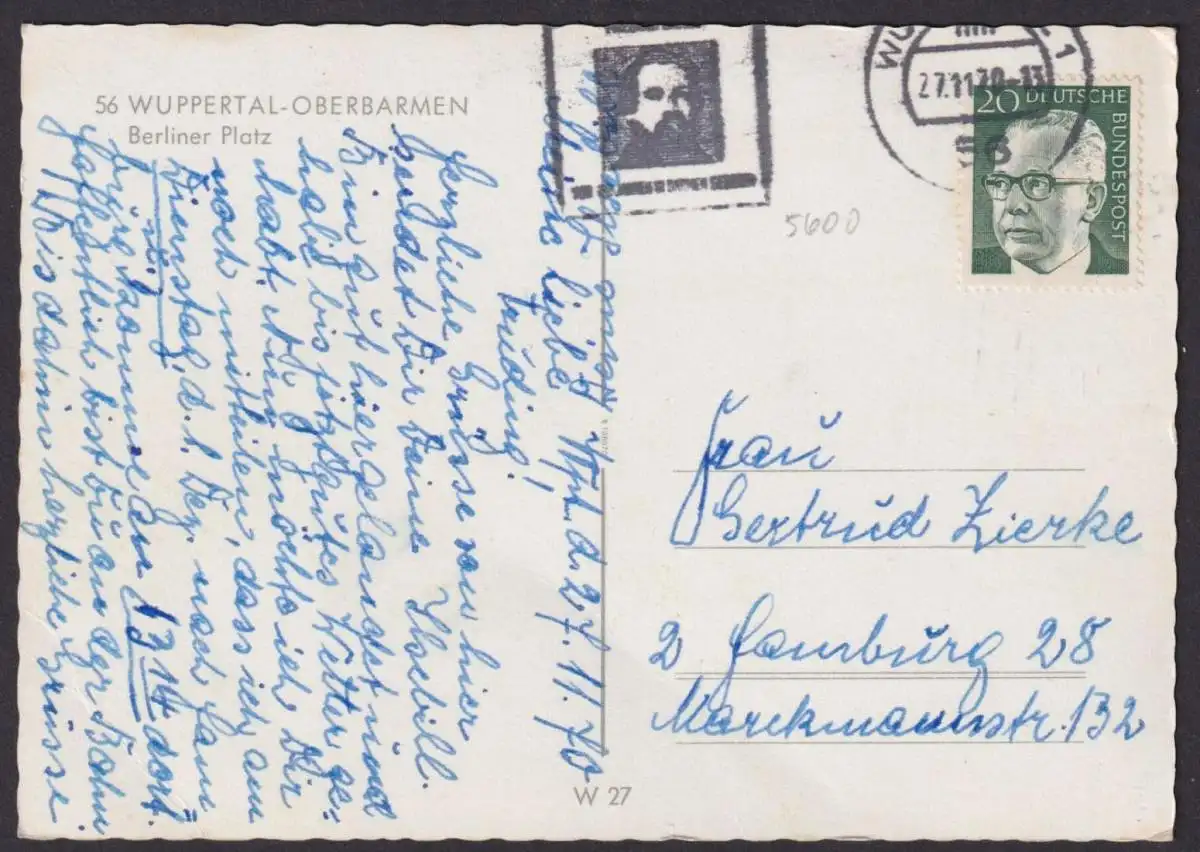 56 WUPPERTAL-OBERBARMEN
Berliner Platz
Meine liebe Wpt. d. 27.11.70
Truding!
Herzliche Grüsse von hier
sendet Dir Deine Ilsebill.
Bin gut hier gelandet und
habe bis jetzt gutes Wetter ge-
habt. Nun möchte ich Dir
noch mitteilen, dass ich am
Dienstag, d. 1. Dez. nach Ham
burg komme an 13 14 dort.
Hoffentlich bist Du an der Bahn.
Bis dahin herzliche Grüsse
W 27
27.11.70-13
20 DEUTSCHE BUNDESPOST
5600
Frau
Gertrud Zierke
2 Hamburg 28
Marckmannstr. 132